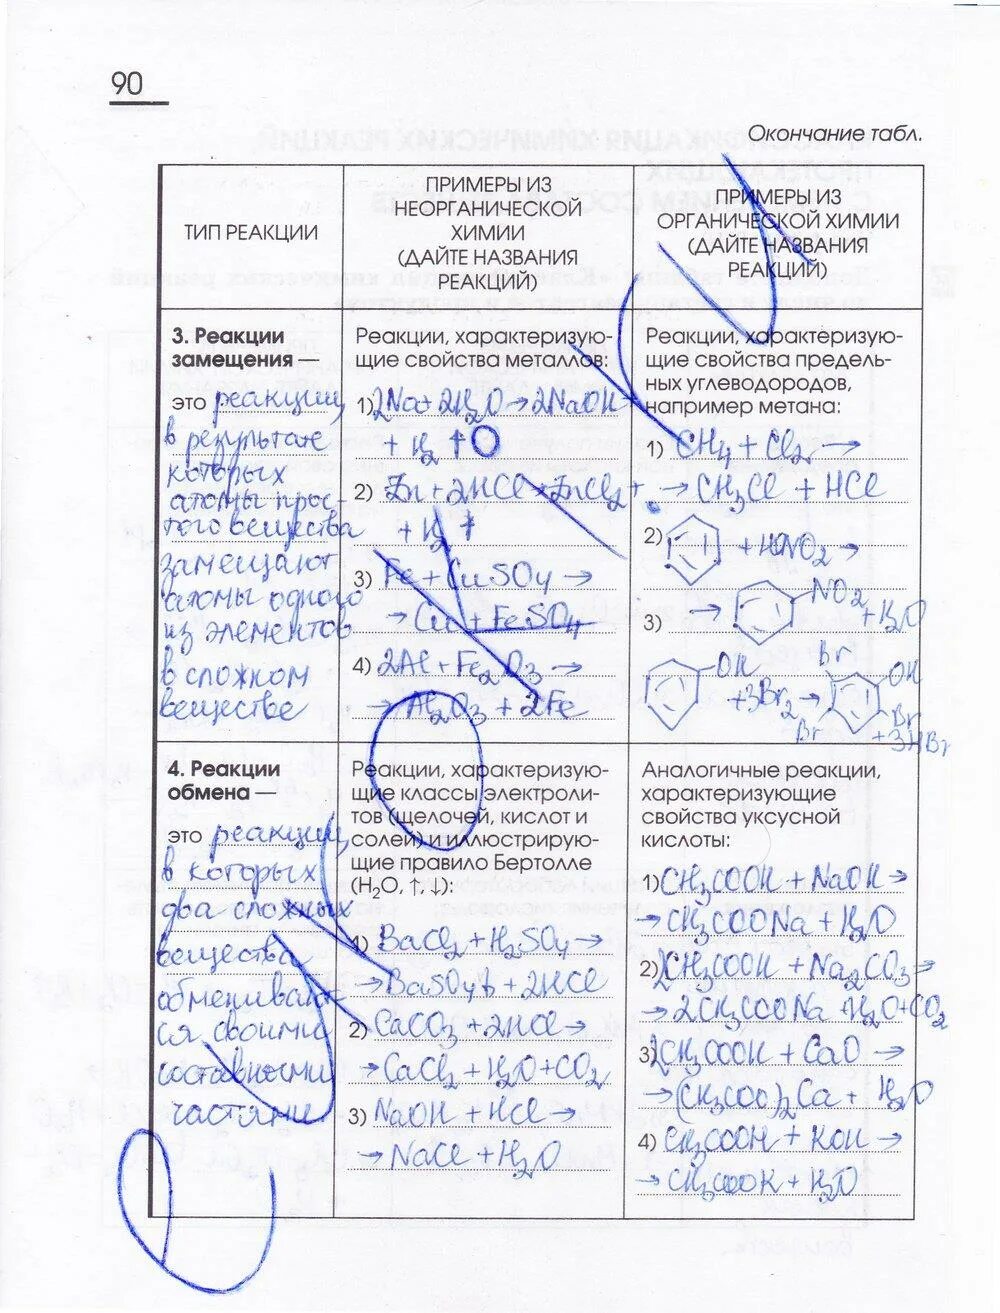 90
Окончание табл.
ТИП РЕАКЦИИ
ПРИМЕРЫ ИЗ
НЕОРГАНИЧЕСКОЙ
ХИМИИ
(ДАЙТЕ НАЗВАНИЯ
РЕАКЦИЙ)
ПРИМЕРЫ ИЗ
ОРГАНИЧЕСКОЙ ХИМИИ
(ДАЙТЕ НАЗВАНИЯ
РЕАКЦИЙ)
3. Реакции
замещения —
это реакции,
в результате
которых
атомы прос-
того вещества
замещают
атомы одного
из элементов
в сложном
веществе
Реакции, характеризую-
щие свойства металлов:
1) 2Na + 2H₂O → 2NaOH +
+ H₂ ↑
2) Zn + 2HCl → ZnCl₂ +
+ H₂ ↑
3) Fe + CuSO₄ →
→ Cu + FeSO₄
4) 2Al + Fe₂O₃ →
→ Al₂O₃ + 2Fe
Реакции, характеризую-
щие свойства предель-
ных углеводородов,
например метана:
1) CH₄ + Cl₂ →
→ CH₃Cl + HCl
2) + HONO₂ →
→ NO₂ + H₂O
3)
OH + 3Br₂ → Br OH Br Br + 3HBr
4. Реакции
обмена —
это реакции,
в которых
два сложных
вещества
обменивают-
ся своими
составными
частями
Реакции, характеризую-
щие классы электроли-
тов (щелочей, кислот и
солей) и иллюстрирую-
щие правило Бертолле
(H₂O, ↑, ↓):
1) BaCl₂ + H₂SO₄ →
→ BaSO₄↓ + 2HCl
2) CaCO₃ + 2HCl →
→ CaCl₂ + H₂O + CO₂
3) NaOH + HCl →
→ NaCl + H₂O
Аналогичные реакции,
характеризующие
свойства уксусной
кислоты:
1) CH₃COOH + NaOH →
→ CH₃COONa + H₂O
2) 2CH₃COOH + Na₂CO₃ →
→ 2CH₃COONa + H₂O + CO₂
3) 2CH₃COOH + CaO →
→ (CH₃COO)₂Ca + H₂O
4) CH₃COOH + KOH →
→ CH₃COOK + H₂O